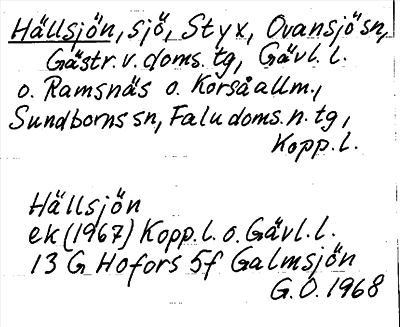 Hällsjön, sjö, Styx, Ovansjö sn,
Gästr. v. doms. tg, Gävl. l.
o. Ramsnäs o. Korså allm.,
Sundborns sn, Falu doms. n. tg,
Kopp. l.
Hällsjön
ek (1967) Kopp. l. o. Gävl. l.
13 G Hofors 5f Galmsjön
G.O. 1968